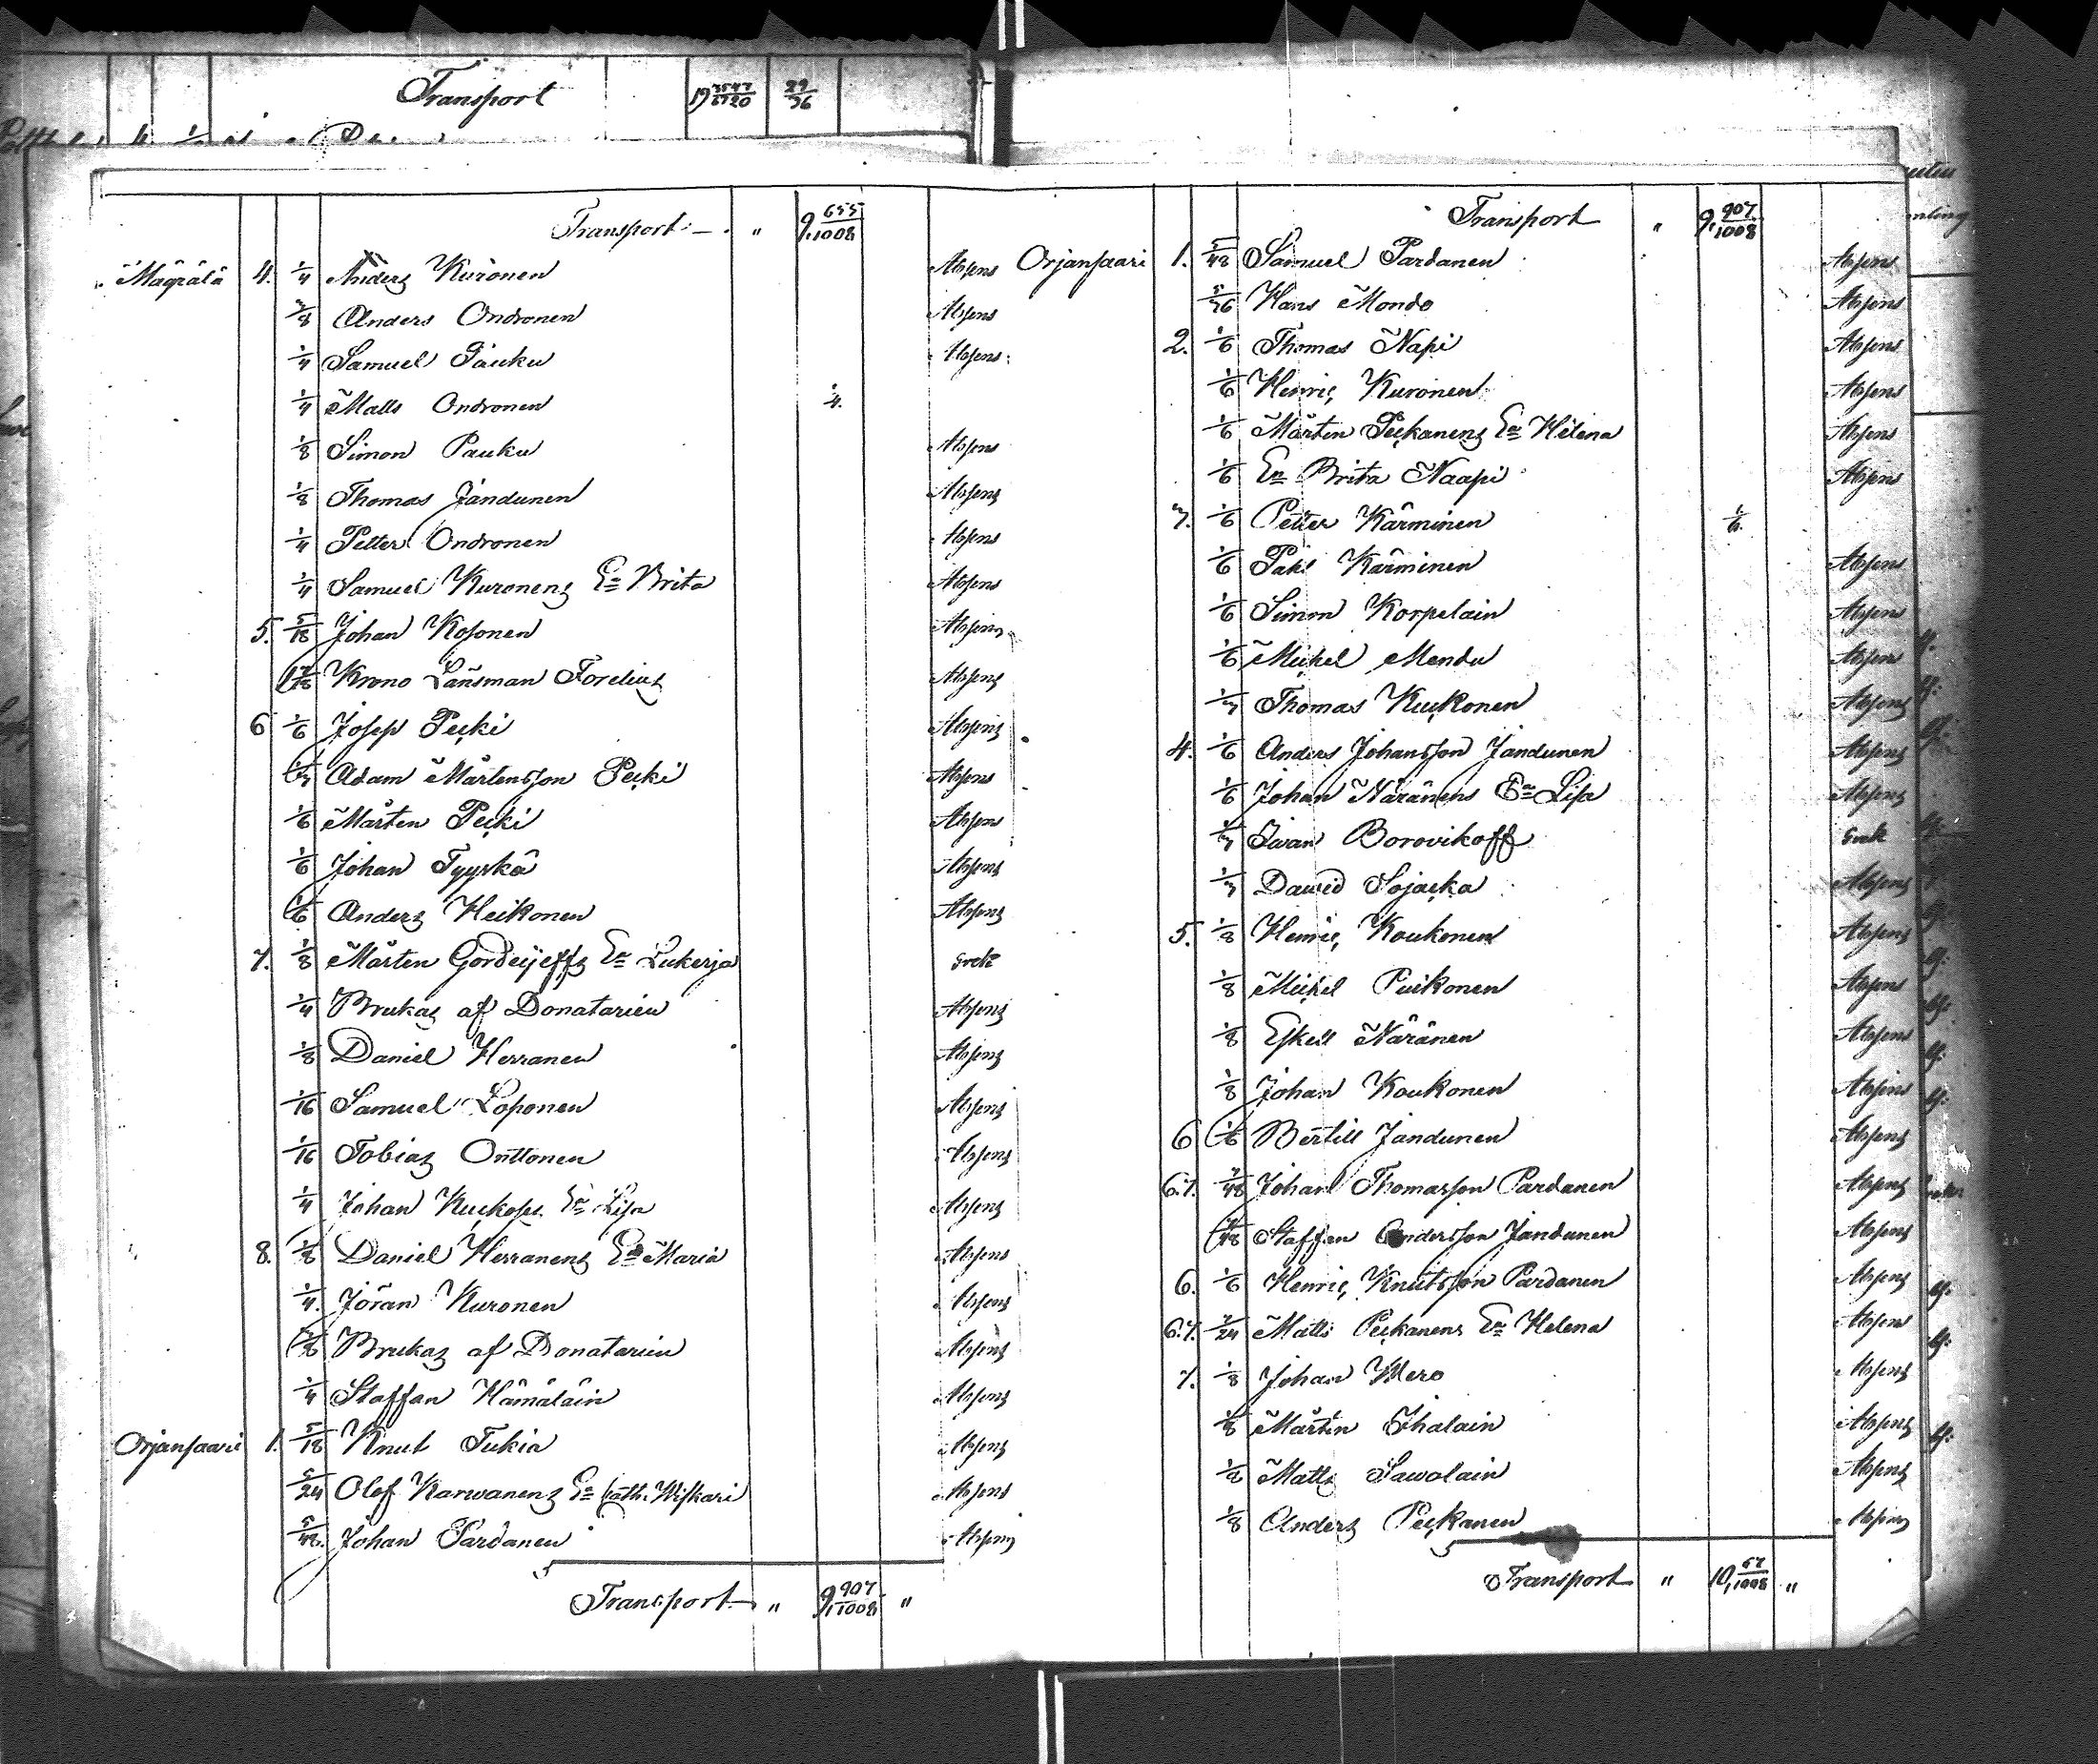 Transport 19 29/96
Transport " 9, 655/1008
Mägrälä 4. 1/4 Anders Kuronen Absens
3/8 Anders Ondronen Absens
1/4 Samuel Pauku Absens
1/4 Matts Ondronen 1/4.
1/8 Simon Pauku Absens
1/8 Thomas Jandunen Absens
1/4 Petter Ondronen Absens
1/4 Samuel Kuronens En Brita Absens
5. 5/18 Johan Kosonen Absens
Krono Länsman Forelius Absens
6 1/6 Josep Pecki Absens
Adam Mårtensson Pecki Absens
1/6 Mårten Pecki Absens
1/6 Johan Tyyskä Absens
1/6 Anders Heikonen Absens
7. 1/8 Mårten Gordeijeffs En Lukerja Grek
1/4 Brukas af Donatarien Absens
1/8 Daniel Herranen Absens
1/16 Samuel Loponen Absens
1/16 Tobias Onttonen Absens
1/4 Johan En Lisa Absens
8. 1/8 Daniel Herranens En Maria Absens
1/4. Jöran Kuronen Absens
Brukas af Donatarien Absens
1/4 Staffan Hämäläin Absens
Orjansaari 1. 5/18 Knut Tukia Absens
5/24 Olof Karwanens En Cath. Wiskari Absens
5/48. Johan Pardanen Absens
Transport " 9, 907/1008 "
Transport " 9, 907/1008
Orjansaari 1. 5/48 Samuel Pardanen Absens
Hans Mondo Absens
2. 1/6 Thomas Napi Absens
1/6 Henric Kuronen Absens
1/6 Mårten Peckanens En Helena Absens
1/6 En Brita Naapi Absens
3. 1/6 Petter Kärminen 1/6.
1/6 Påhl Kärminen Absens
1/6 Simon Korpelain Absens
1/6 Michel Mondu Absens
1/3 Thomas Kuckonen Absens
4. 1/6 Anders Johansson Jandunen Absens
1/6 Johan Näränens En Lisa Absens
1/3 Iwan Borovikoff Grek
1/3 Dawid Sojacka Absens
5. 1/8 Henric Koukonen Absens
1/8 Michel Puikonen Absens
1/8 Eskell Näränen Absens
1/8 Johan Koukonen Absens
6 1/6 Bertill Jandunen Absens
6.7. 7/48 Johan Thomasson Pardanen Absens
7/48 Staffan Andersson Jandunen Absens
6. 1/6 Henric Knutsson Pardanen Absens
6.7. 7/24 Matts Peckanens En Helena Absens
7. 1/8 Johan Mero Absens
1/8 Mårten Ihalain Absens
1/8 Matts Sawolain Absens
1/8 Anders Peckanen Absens
Transport " 10, 67/1008 "